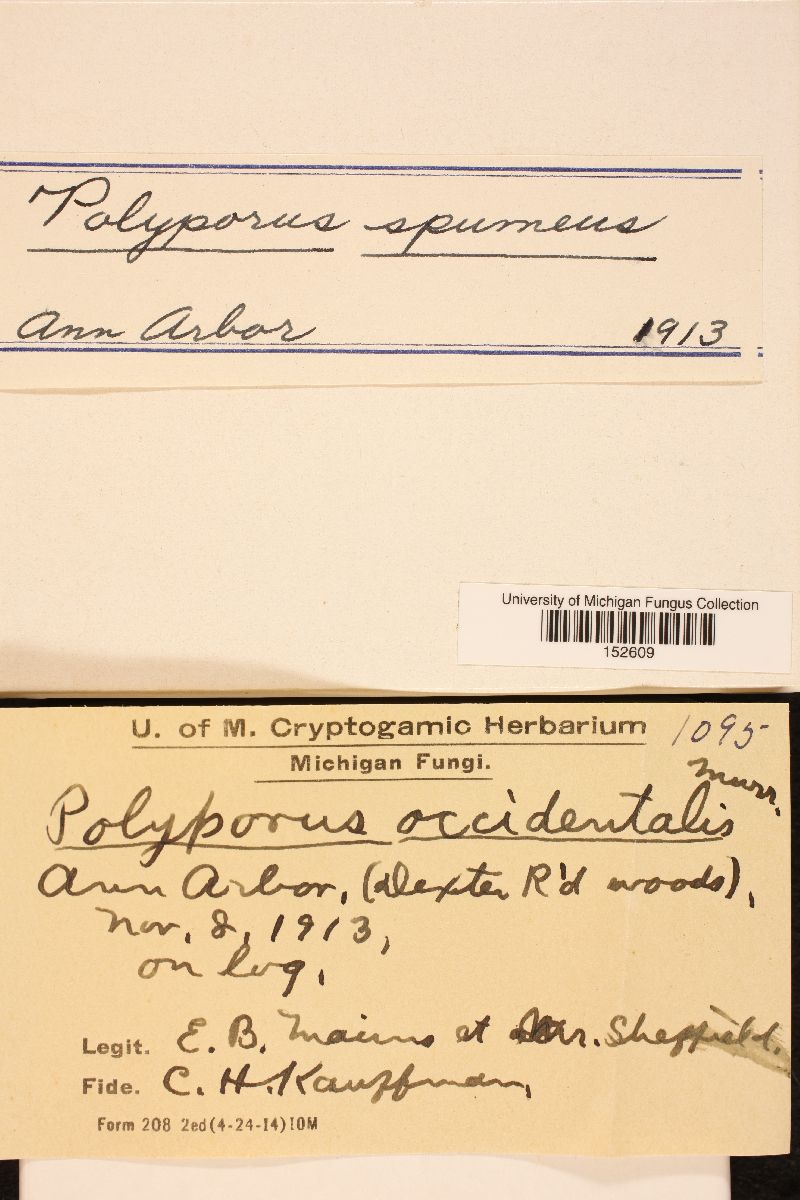 Polyporus spumeus
Ann Arbor 1913
University of Michigan Fungus Collection
152609
U. of M. Cryptogamic Herbarium 1095
Michigan Fungi.
Murr.
Polyporus occidentalis
Ann Arbor, (Dexter R'd woods),
Nov. 2, 1913,
on log,
Legit. E. B. Mains et Mr. Sheffield.
Fide. C. H. Kauffman,
Form 208 2ed(4-24-14)10M